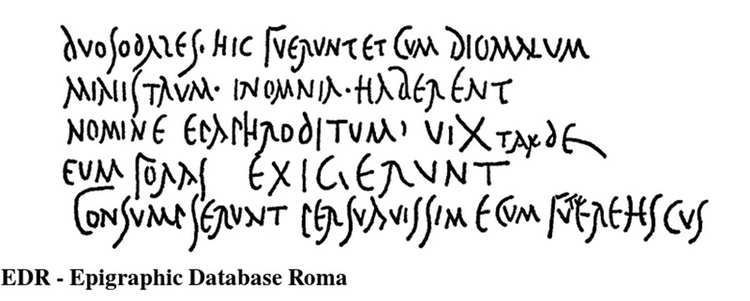 DVO SODALES · HIC FVERVNT ET CVM DIO MALVM
MINISTRVM · IN OMNIA · HABERENT
NOMINE EPAPHRODITVM VIX TARDE
EVM FORAS EXIGERVNT
CONSVMPSERVNT PERSVAVISSIME CVM FVTVERE HS CVS
EDR - Epigraphic Database Roma